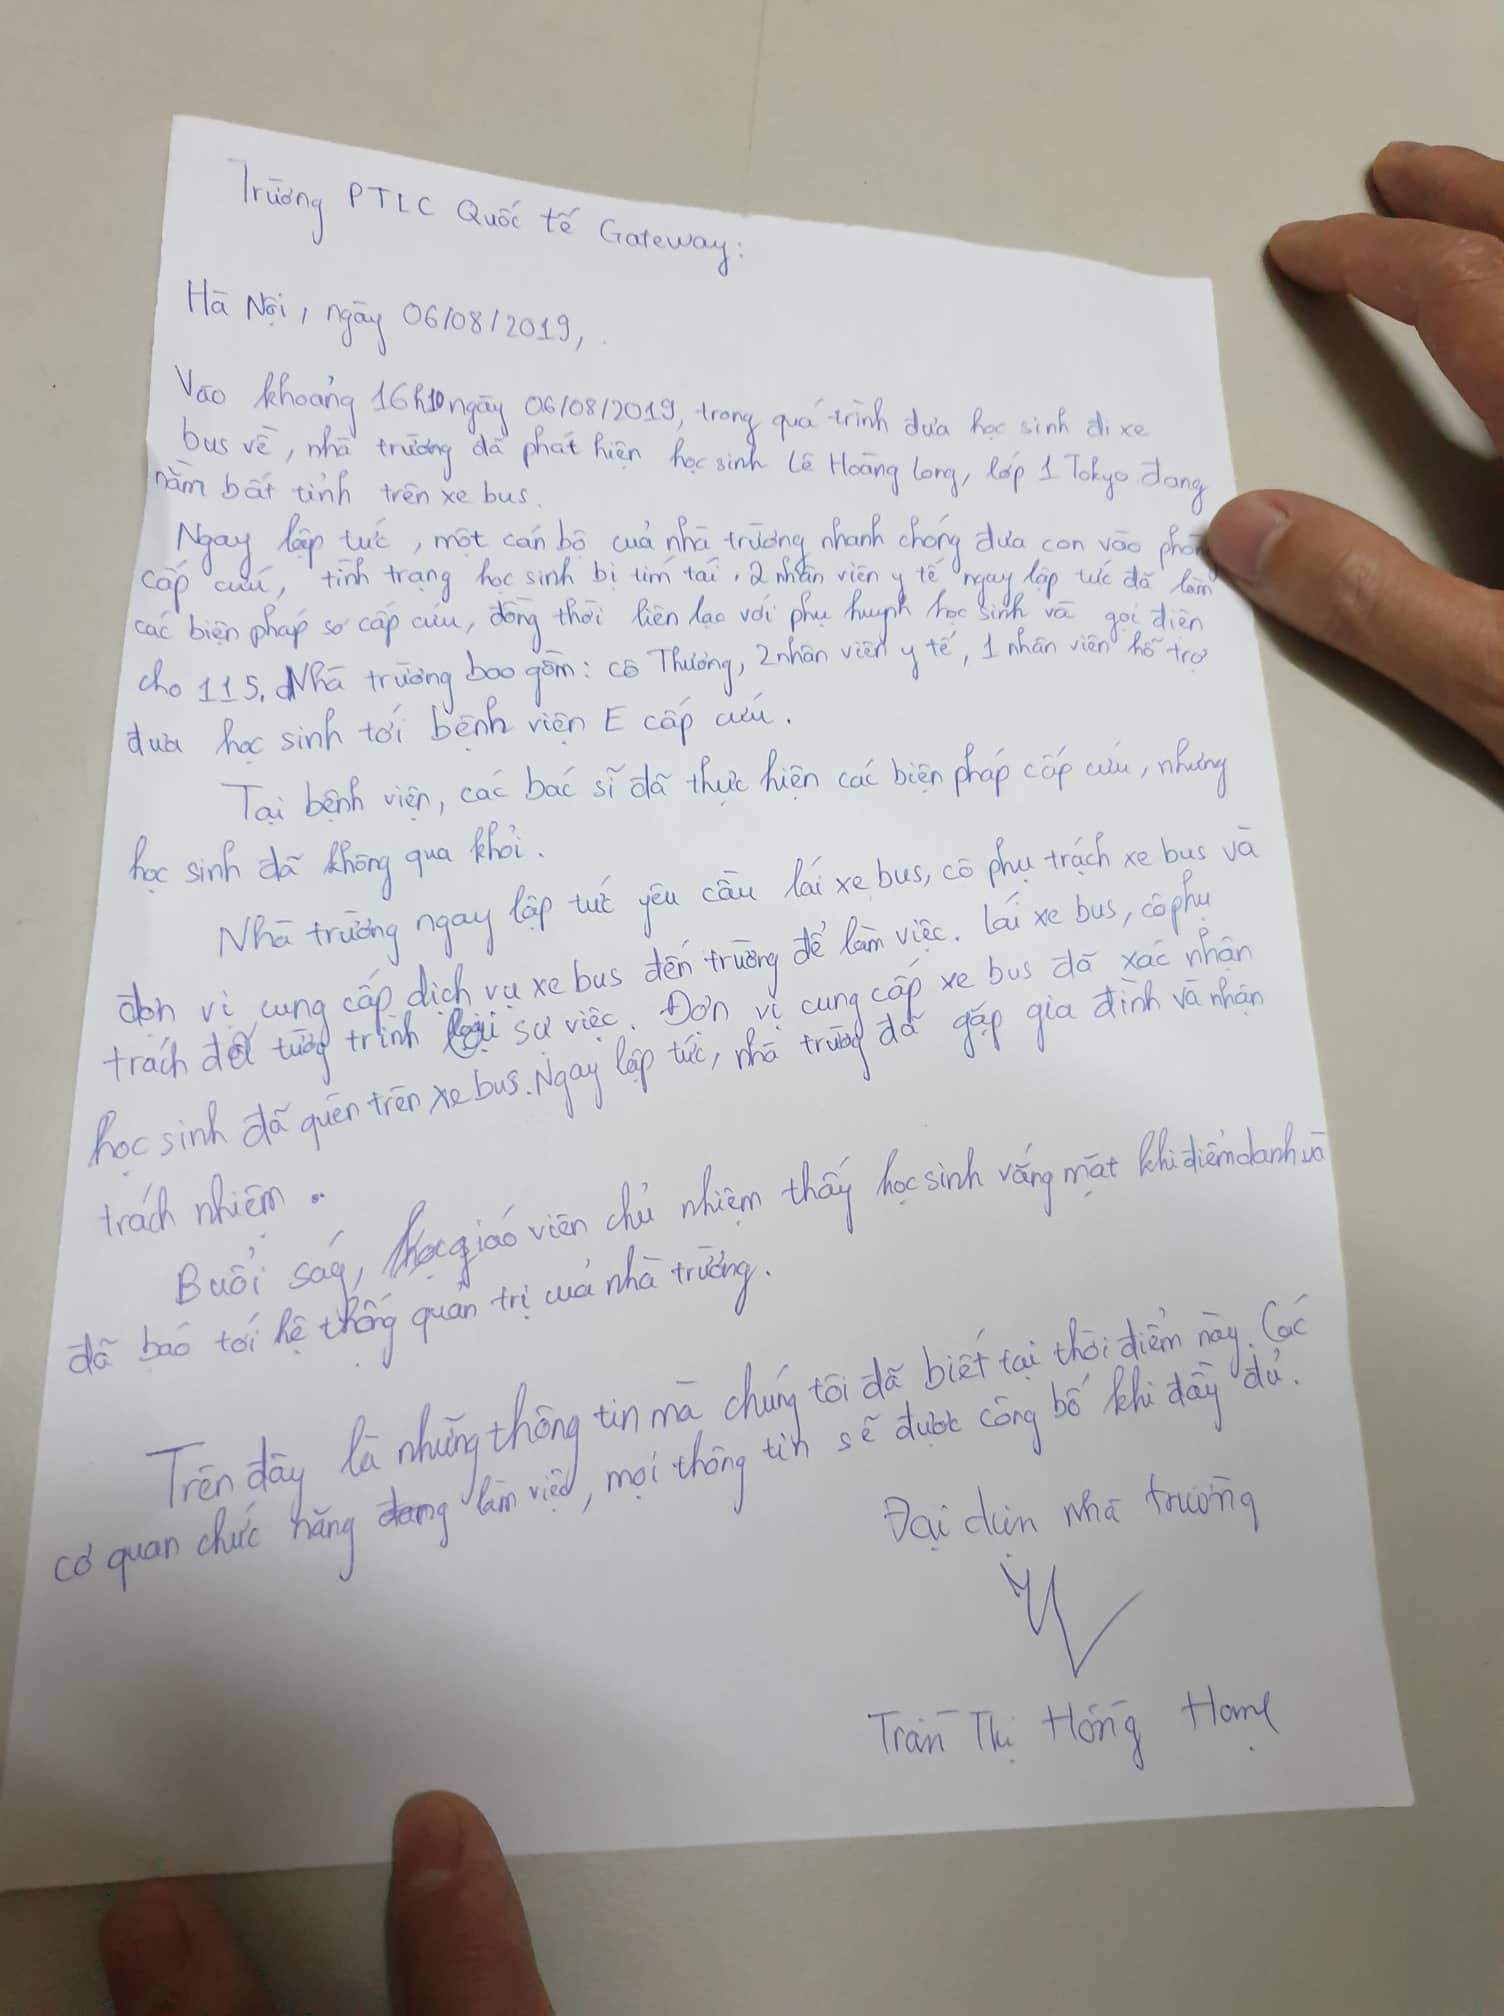 Trường PTLC Quốc tế Gateway:
Hà Nội, ngày 06/08/2019,
Vào khoảng 16h10 ngày 06/08/2019, trong quá trình đưa học sinh đi xe
bus về, nhà trường đã phát hiện học sinh Lê Hoàng Long, lớp 1 Tokyo đang
nằm bất tỉnh trên xe bus.
Ngay lập tức, một cán bộ của nhà trường nhanh chóng đưa con vào phòng
cấp cứu, tình trạng học sinh bị tím tái. 2 nhân viên y tế ngay lập tức đã làm
các biện pháp sơ cấp cứu, đồng thời liên lạc với phụ huynh học sinh và gọi điện
cho 115. Nhà trường bao gồm: cô Thương, 2 nhân viên y tế, 1 nhân viên hỗ trợ
đưa học sinh tới bệnh viện E cấp cứu.
Tại bệnh viện, các bác sĩ đã thực hiện các biện pháp cấp cứu, nhưng
học sinh đã không qua khỏi.
Nhà trường ngay lập tức yêu cầu lái xe bus, cô phụ trách xe bus và
đơn vị cung cấp dịch vụ xe bus đến trường để làm việc. Lái xe bus, cô phụ
trách để tường trình lại sự việc. Đơn vị cung cấp xe bus đã xác nhận
học sinh đã quên trên xe bus. Ngay lập tức, nhà trường đã gặp gia đình và nhận
trách nhiệm.
Buổi sáng, giáo viên chủ nhiệm thấy học sinh vắng mặt khi điểm danh và
đã báo tới hệ thống quản trị của nhà trường.
Trên đây là những thông tin mà chúng tôi đã biết tại thời điểm này. Các
cơ quan chức năng đang làm việc, mọi thông tin sẽ được công bố khi đầy đủ.
Đại diện nhà trường
Trần Thị Hồng Hạnh